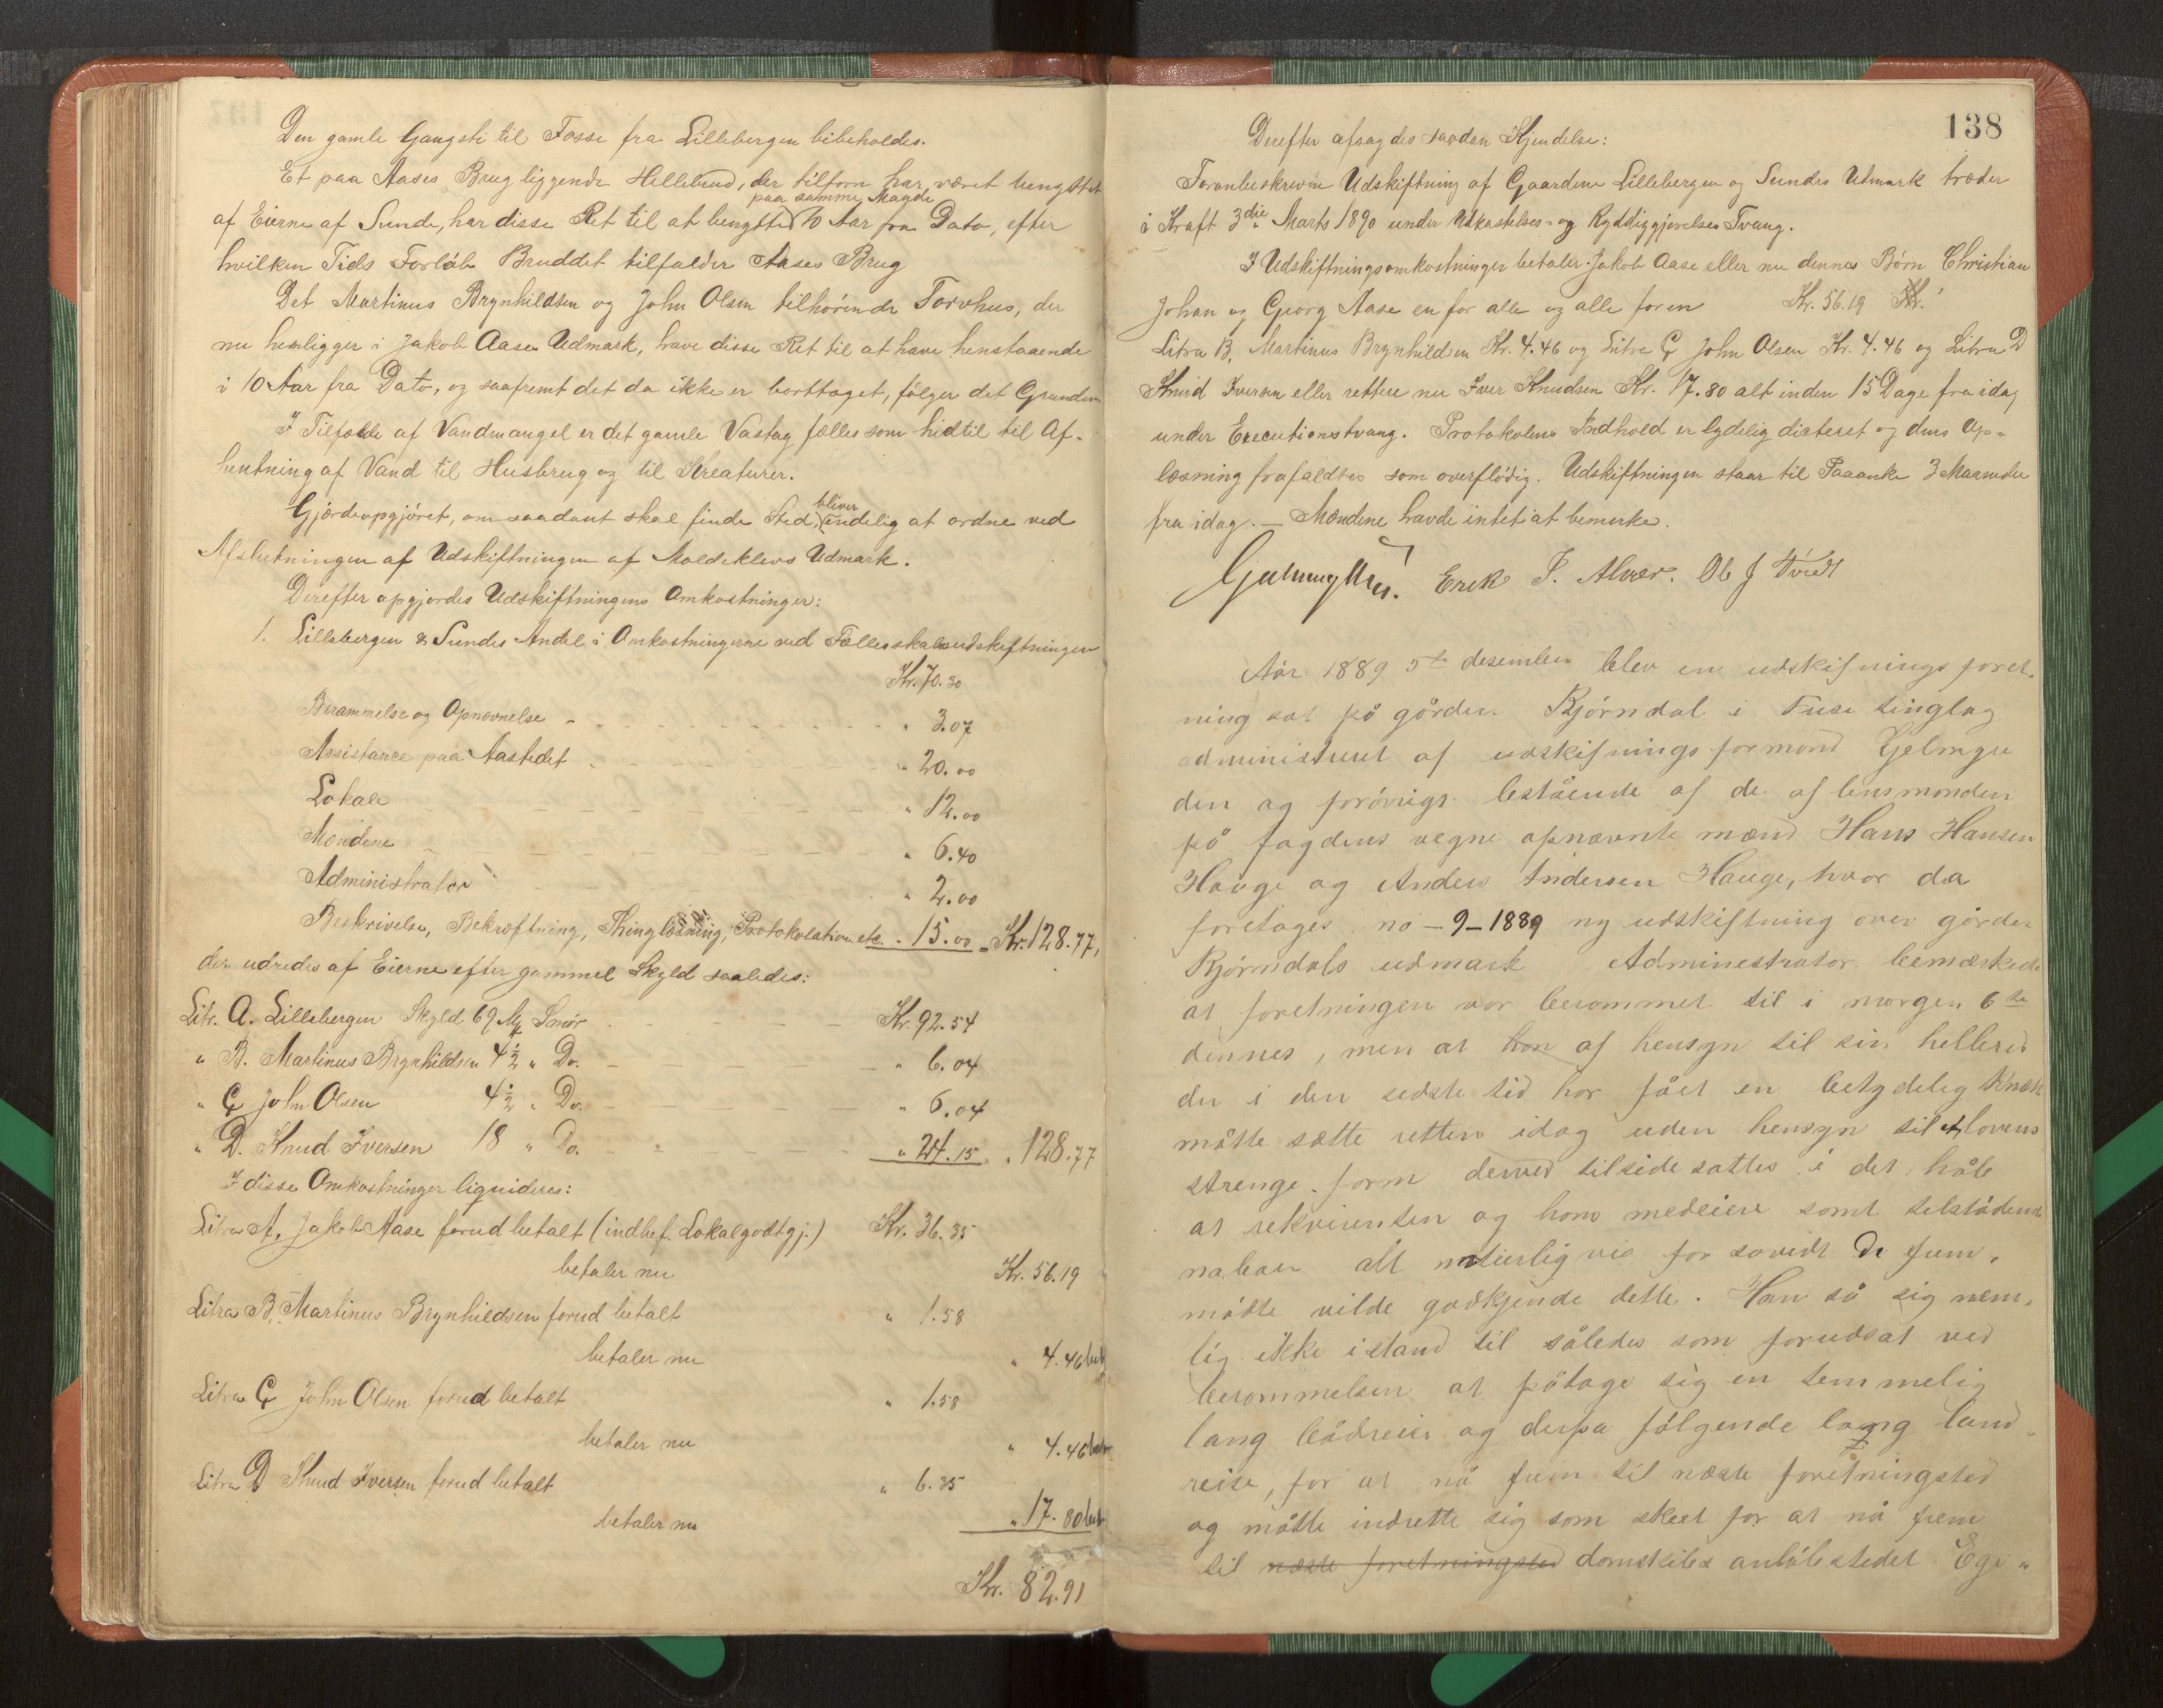 Den gamle Gangsti til Fosse fra Lillebergen bibeholdes.
Et paa Aases Brug liggende Hellebrud, der tilforn har været benyttet
paa samme Maade
af Eierne af Sunde, har disse Ret til at benytte 10 Aar fra Dato, efter
hvilken Tids Forløb Bruddet tilfalder Aases Brug
Det Martinus Brynhildsen og John Olsen tilhørende Torvhus, der
nu henligger i Jakob Aases Udmark, have disse Ret til at have henstaaende
i 10 Aar fra Dato, og saafremt det da ikke er borttaget, følger det Grunden.
I Tilfælde af Vandmangel er det gamle Vastag fælles som hidtil til Af-
hentning af Vand til Husbrug og til Kreaturer.
bliver
Gjærdeopgjøret, om saadant skal finde Sted, endelig at ordne ved
Afslutningen af Udskiftningen af Moldeklevs Udmark.
Derefter opgjordes Udskiftningens Omkostninger:
1. Lillebergen & Sundes Andel i Omkostningerne ved Fællesskabsudskiftningen
Kr. 70.30
Berammelse og Opnævnelse - " 3.07
Assistance paa Aastedet - " 20.00
Lokale - " 12.00
Mændene - " 6.40
Administrator - " 2.00
Beskrivelse, Bekræftning, Thinglæsning, Protokolation etc. " 15.00 = Kr. 128.77,
der udredes af Eierne efter gammel Skyld saaledes:
Litr. A. Lillebergen Skyld 69 Mk Smør - Kr. 92.54
" B. Martinus Brynhildsen 4½ " Do. - " 6.04
" C John Olsen 4½ " Do. - " 6.04
" D. Knud Iversen 18 " Do. - " 24.15 " 128.77
I disse Omkostninger liquideres:
Litra A, Jakob Aase forud betalt (indbef. Lokalgodtgj.) Kr. 36.35
betaler nu Kr. 56.19
Litra B, Martinus Brynhildsen forud betalt " 1.58
betaler nu " 4.46 bet
Litra C John Olsen forud betalt " 1.58
betaler nu " 4.46
Litra D Knud Iversen forud betalt " 6.35
betaler nu " 17.80 bet
Kr. 82.91
138
Derefter afsagdes saadan Kjendelse:
Foranbeskrevne Udskiftning af Gaardene Lillebergen og Sundes Udmark træder
i Kraft 3die Marts 1890 under Udkastelses- og Ryddiggjørelses Tvang.
I Udskiftningsomkostninger betaler Jakob Aase eller nu dennes Børn Christian
Johan og Georg Aase en for alle og alle for en Kr. 56.19 Kr.
Litra B, Martinus Brynhildsen Kr. 4.46 og Litra C John Olsen Kr. 4.46 og Litra D
Knud Iversen eller rettere nu Iver Knudsen Kr. 17.80 alt inden 15 Dage fra idag
under Executionstvang. Protokolens Indhold er lydelig dicteret og dens Op-
læsning frafaldtes som overflødig. Udskiftningen staar til Paaanke 3 Maaneder
fra idag. — Mændene havde intet at bemerke.
Erek P. Ob J Tvedt
Aar 1889 5te desember blev en udskifnings foret-
ning sat på gården Bjørndal i Fuse tinglag
administreret af udskifnings formand Gjelmyr
den og forøvrigt bestående af de af lensmanden
på fogdens vegne opnævnte mænd Hans Hansen
Hauge og Anders Andersen Hauge, hvor da
foretages no - 9 - 1889 ny udskiftning over gården
Bjørndals udmark Adminestrator bemærkede
at foretningen var berammet til i morgen 6te
dennes, men at han af hensyn til sin helbred
der i den sidste tid har fået en betydelig knæk
måtte sætte retten idag uden hensyn til at lovens
strenge form derved tilsidesattes i det håb
at rekvirenten og hans medeiere samt tilstødende
naboer alt naturligvis for såvidt de frem-
mødte vilde godkjende dette. Han så sig nem-
lig ikke istand til således som forudsat ved
berammelsen at påtage sig en temmelig
lang bådreise og derpa følgende lang land-
reise, for at nå frem til næste foretningsted
og måtte indrette sig som skeet for at nå frem
til næste foretningsted damskibs anløbstedet Ege-